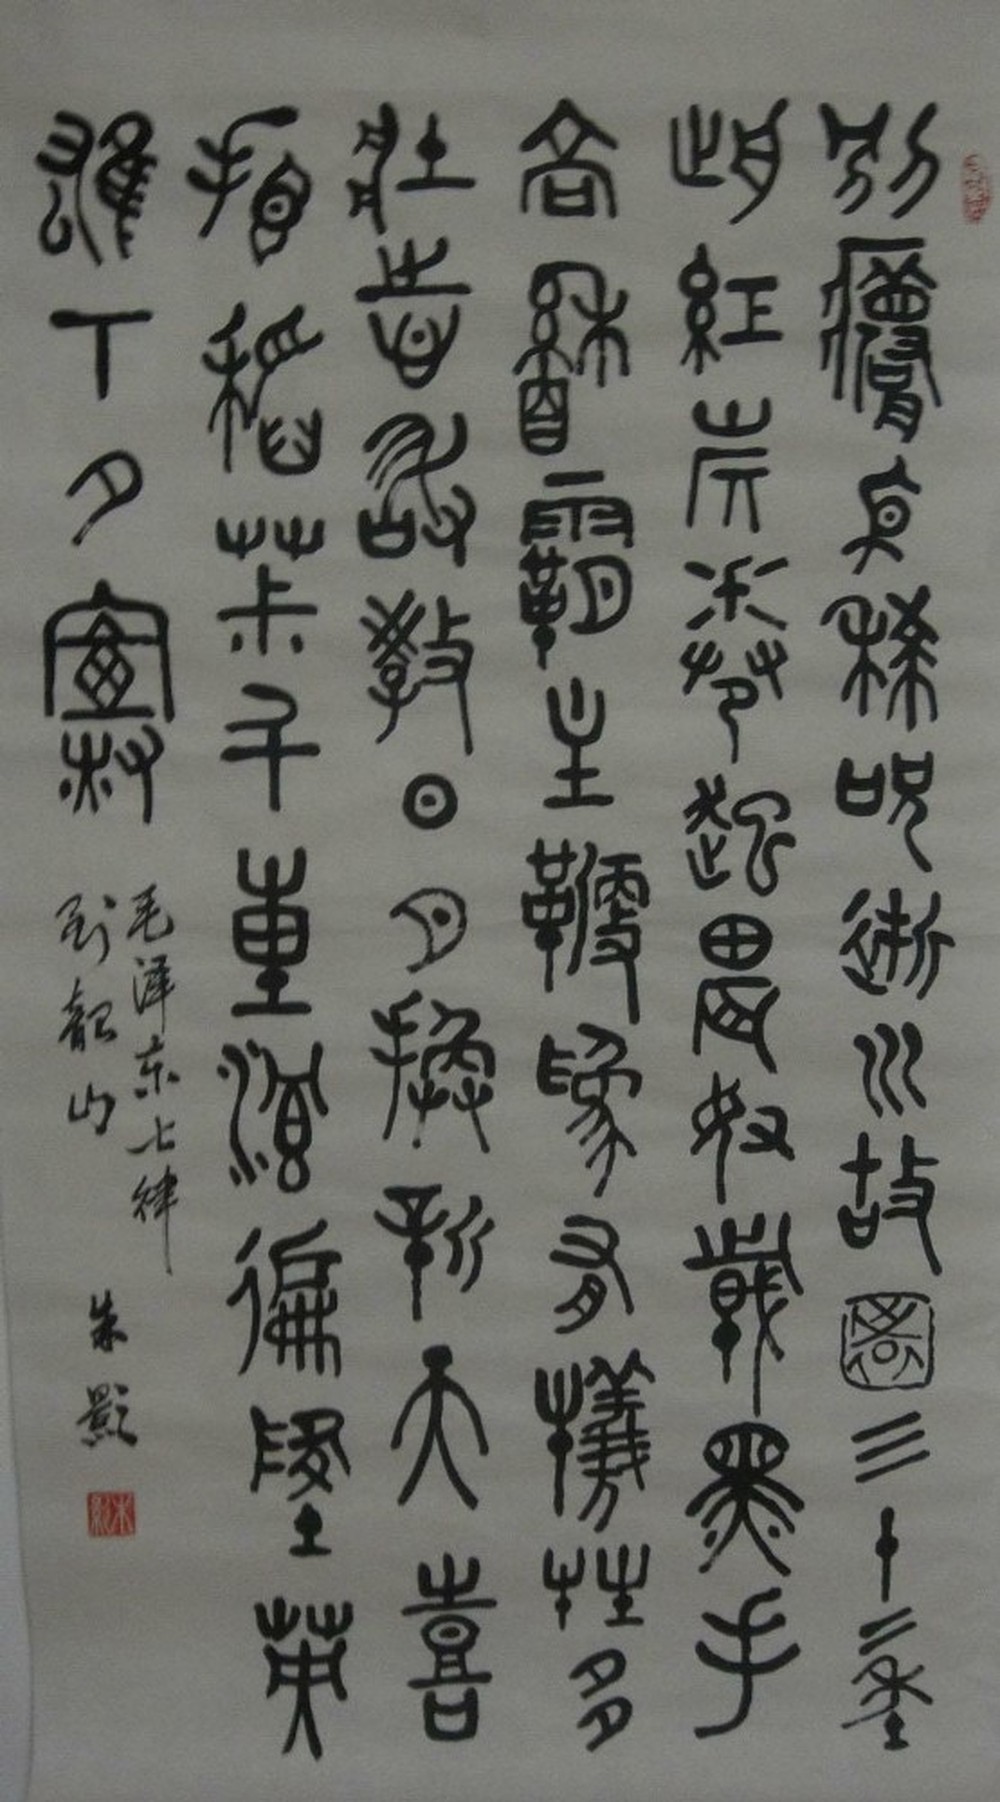 別夢依稀咒逝川故園三十二年
前紅旗卷起農奴戟黑手
高懸霸主鞭為有犧牲多
壯志敢教日月換新天喜
看稻菽千重浪遍地英
雄下夕煙
毛泽东七律
到韶山
朱影